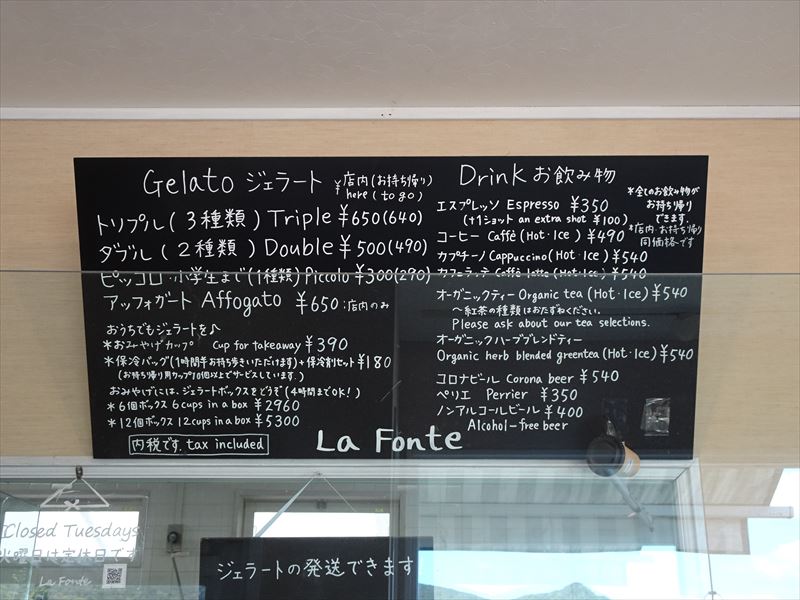 Gelato ジェラート ¥ 店内(お持ち帰り)
here (to go)
トリプル(3種類) Triple ¥650(640)
ダブル(2種類) Double ¥500(490)
ピッコロ・小学生まで(1種類) Piccolo ¥300(290)
アッフォガート Affogato ¥650:店内のみ
おうちでもジェラートを♪
*おみやげカップ Cup for takeaway ¥390
*保冷バッグ(1時間半お持ち歩きいただけます)+保冷剤セット¥180
(お持ち帰り用カップ10個以上でサービスしています.)
おみやげには、ジェラートボックスをどうぞ(4時間までOK!)
*6個ボックス 6cups in a box ¥2960
*12個ボックス 12cups in a box ¥5300
内税です. tax included
La Fonte
Drink お飲み物
エスプレッソ Espresso ¥350
(+1ショット an extra shot ¥100)
コーヒー Caffè (Hot・Ice) ¥490
カプチーノ Cappuccino (Hot・Ice) ¥540
カフェラッテ Caffè latte (Hot・Ice) ¥540
*全てのお飲み物が
お持ち帰り
できます.
*店内・お持ち帰り
同価格です
オーガニックティー Organic tea (Hot・Ice) ¥540
〜紅茶の種類はおたずねください.
Please ask about our tea selections.
オーガニックハーブブレンドティー
Organic herb blended greentea (Hot・Ice) ¥540
コロナビール Corona beer ¥540
ペリエ Perrier ¥350
ノンアルコールビール ¥400
Alcohol-free beer
Closed Tuesdays
火曜日は定休日です
La Fonte
ジェラートの発送できます